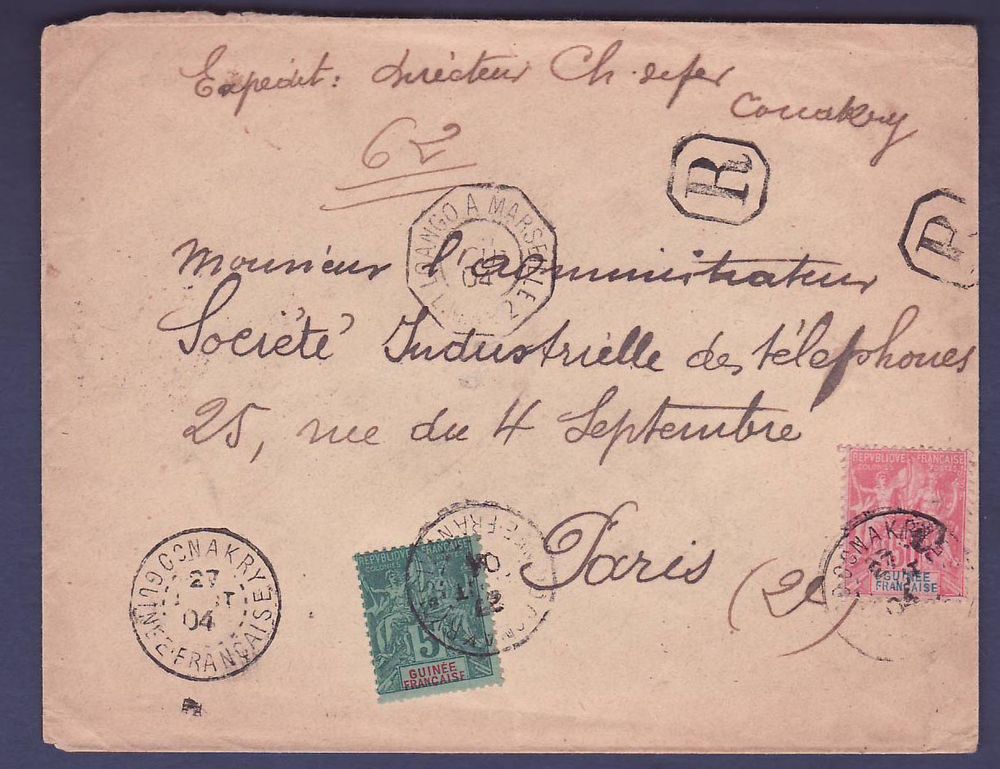 Expédit: Directeur Ch. de fer
Conakry
62
R
R
LOANGO A MARSEILLE
04
2
Monsieur l'administrateur
Société Industrielle des téléphones
25, rue du 4 Septembre
Paris
(2e)
CONAKRY
27
04
GUINÉE FRANÇAISE
REPVBLIQUE FRANÇAISE
5
GUINÉE
FRANÇAISE
CONAKRY
04
REPVBLIQUE FRANÇAISE
COLONIES POSTES
GUINÉE
FRANÇAISE
CONAKRY
27
04